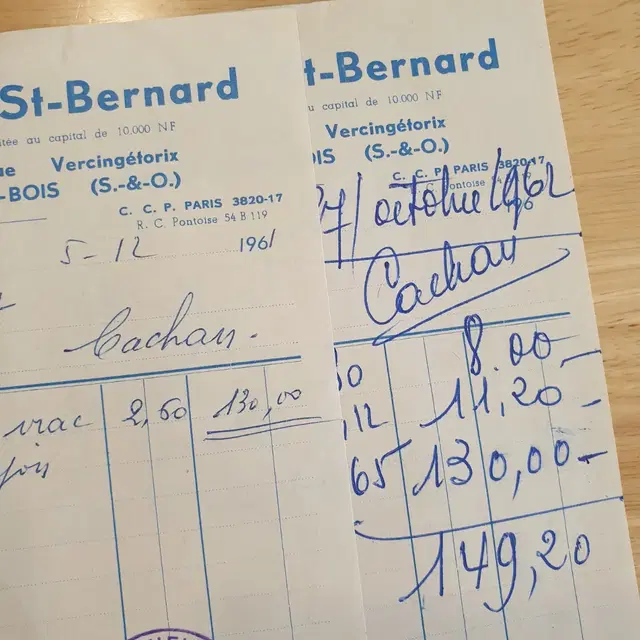 St-Bernard
itée au capital de 10.000 NF
ue Vercingétorix
-BOIS (S.-&-O.)
C. C. P. PARIS 3820-17
R. C. Pontoise 54 B 119
5-12 1961
Cachan.
vrac 2,60 130,00
t-Bernard
u capital de 10.000 NF
Vercingétorix
IS (S.-&-O.)
C. C. P. PARIS 3820-17
Pontoise
7/octobre/1962
Cachan
8.00-
,12 11,20-
65 130,00-
149,20